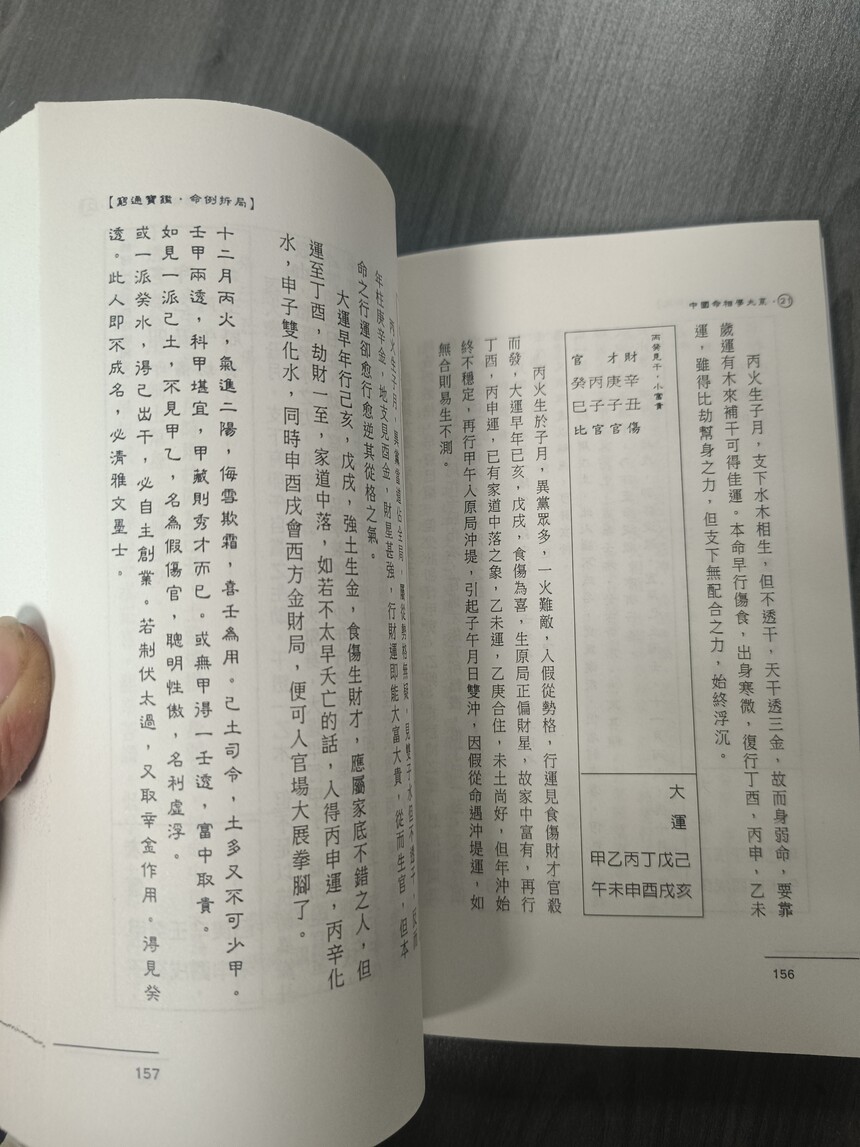 中國命相學大系·21
丙火生子月，支下水木相生，但不透干，天干透三金，故而身弱命，要靠
歲運有木來補干可得佳運。本命早行傷食，出身寒微，復行丁酉，丙申，乙未
運，雖得比劫幫身之力，但支下無配合之力，始終浮沉。
丙癸見干，小富貴
財 才 官
辛庚丙癸
丑子子巳
傷官官比
大運
己戊丁丙乙甲
亥戌酉申未午
丙火生於子月，異黨眾多，一火難敵，入假從勢格，行運見食傷財才官殺
而發，大運早年己亥，戊戌，食傷為喜，生原局正偏財星，故家中富有，再行
丁酉，丙申運，已有家道中落之象，乙未運，乙庚合住，未土尚好，但年沖始
終不穩定，再行甲午人原局沖堤，引起子午月日雙沖，因假從命遇沖堤運，如
無合則易生不測。
156
【窮通寶鑑·命例拆局】
丙火生子月，異黨當道佔全局，屬從勢格無疑，見雙子水但不透干，
年柱庚辛金，地支見酉金，財星甚強，行財運即能大富大貴，從而生官，但本
命之行運卻愈行愈逆其從格之氣。
大運早年行己亥，戊戌，強土生金，食傷生財才，應屬家底不錯之人，但
運至丁酉，劫財一至，家道中落，如若不太早夭亡的話，入得丙申運，丙辛化
水，申子雙化水，同時申酉戌會西方金財局，便可入官場大展拳腳了。
十二月丙火，氣進二陽，侮雪欺霜，喜壬為用。己土司令，土多又不可少甲。
壬甲兩透，科甲堪宜，甲藏則秀才而已。或無甲得一壬透，富中取貴。
如見一派己土，不見甲乙，名為假傷官，聰明性傲，名利虛浮。
或一派癸水，得己出干，必自主創業。若制伏太過，又取辛金作用。得見癸
透。此人即不成名，必清雅文墨士。
157